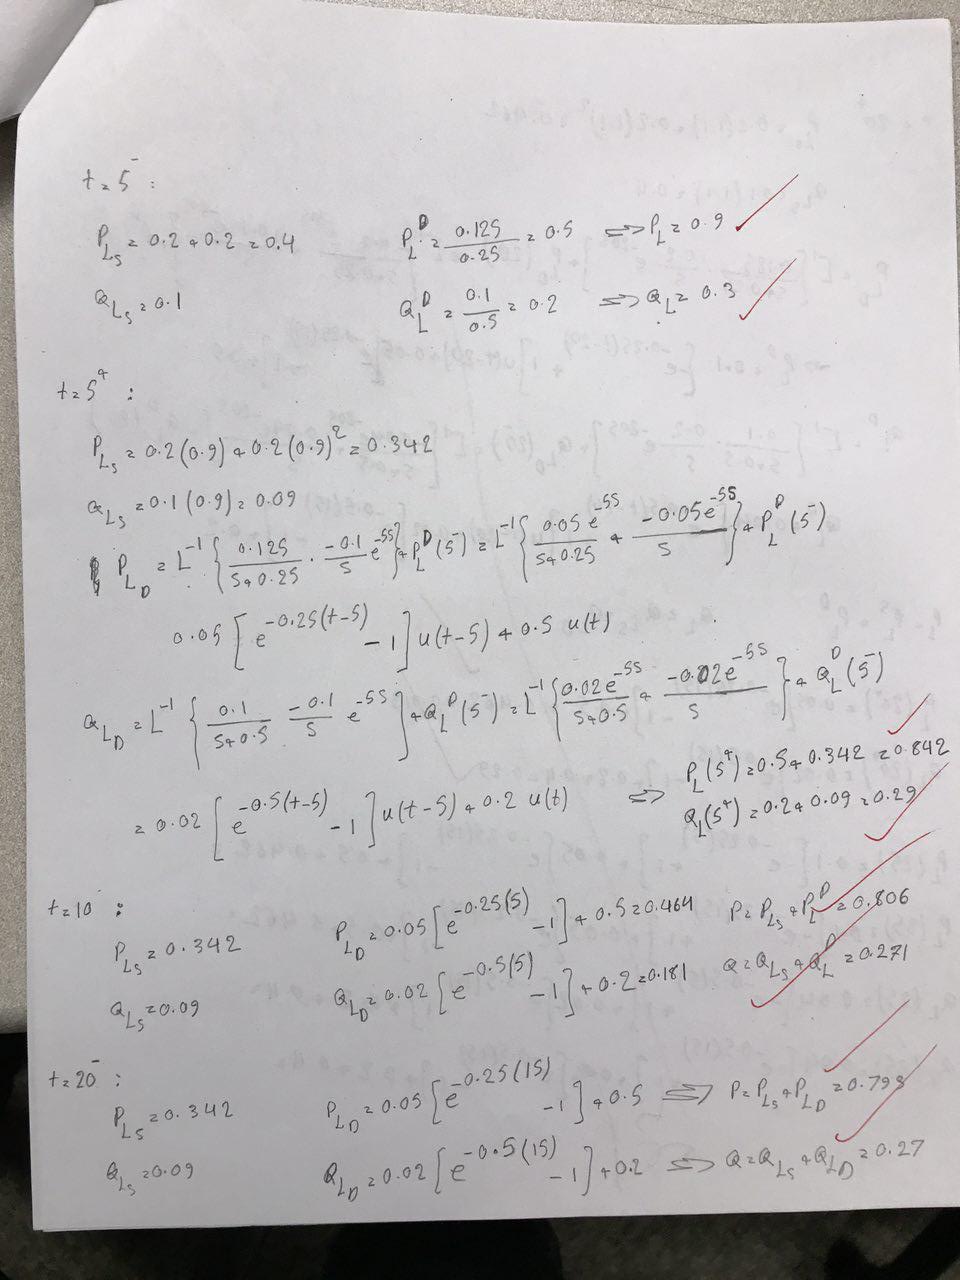 t=5⁻ :
P_Ls = 0.2+0.2=0.4 P_L^D = 0.125/0.25 = 0.5 ⇒ P_L = 0.9
Q_Ls = 0.1 Q_L^D = 0.1/0.5 = 0.2 ⇒ Q_L = 0.3
t=5⁺ :
P_Ls = 0.2(0.9)+0.2(0.9)² = 0.342
Q_Ls = 0.1(0.9) = 0.09
P_LD = L⁻¹{0.125/(S+0.25) · -0.1/S e^-5S}+P_L^D(5⁻) = L⁻¹{0.05e^-5S/(S+0.25) + -0.05e^-5S/S}+P_L^D(5⁻)
0.05[e^-0.25(t-5) -1]u(t-5)+0.5 u(t)
Q_LD = L⁻¹{0.1/(S+0.5) -0.1/S e^-5S}+Q_L^D(5⁻) = L⁻¹{0.02e^-5S/(S+0.5) + -0.02e^-5S/S}+Q_L^D(5⁻)
= 0.02[e^-0.5(t-5) -1]u(t-5)+0.2 u(t) ⇒ P_L(5⁺)=0.5+0.342=0.842
Q_L(5⁺)=0.2+0.09=0.29
t=10 :
P_Ls = 0.342 P_LD = 0.05[e^-0.25(5) -1]+0.5=0.464 P=P_Ls+P_L^D=0.806
Q_Ls=0.09 Q_LD=0.02[e^-0.5(5) -1]+0.2=0.181 Q=Q_Ls+Q_L^D=0.271
t=20⁻ :
P_Ls=0.342 P_LD=0.05[e^-0.25(15) -1]+0.5 ⇒ P=P_Ls+P_LD=0.793
Q_Ls=0.09 Q_LD=0.02[e^-0.5(15) -1]+0.2 ⇒ Q=Q_Ls+Q_LD=0.27